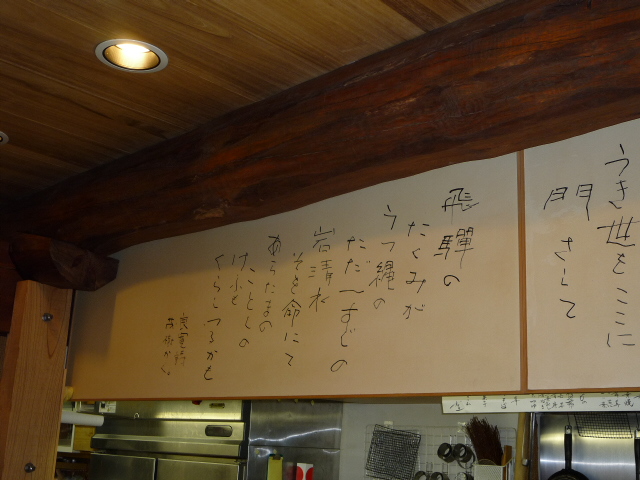 うき世をここに
門さして
飛騨の
たくみが
うつ縄の
ただ一すじの
岩清水
そを命にて
あらたまの
ことしの
けふも
くらしつるかも